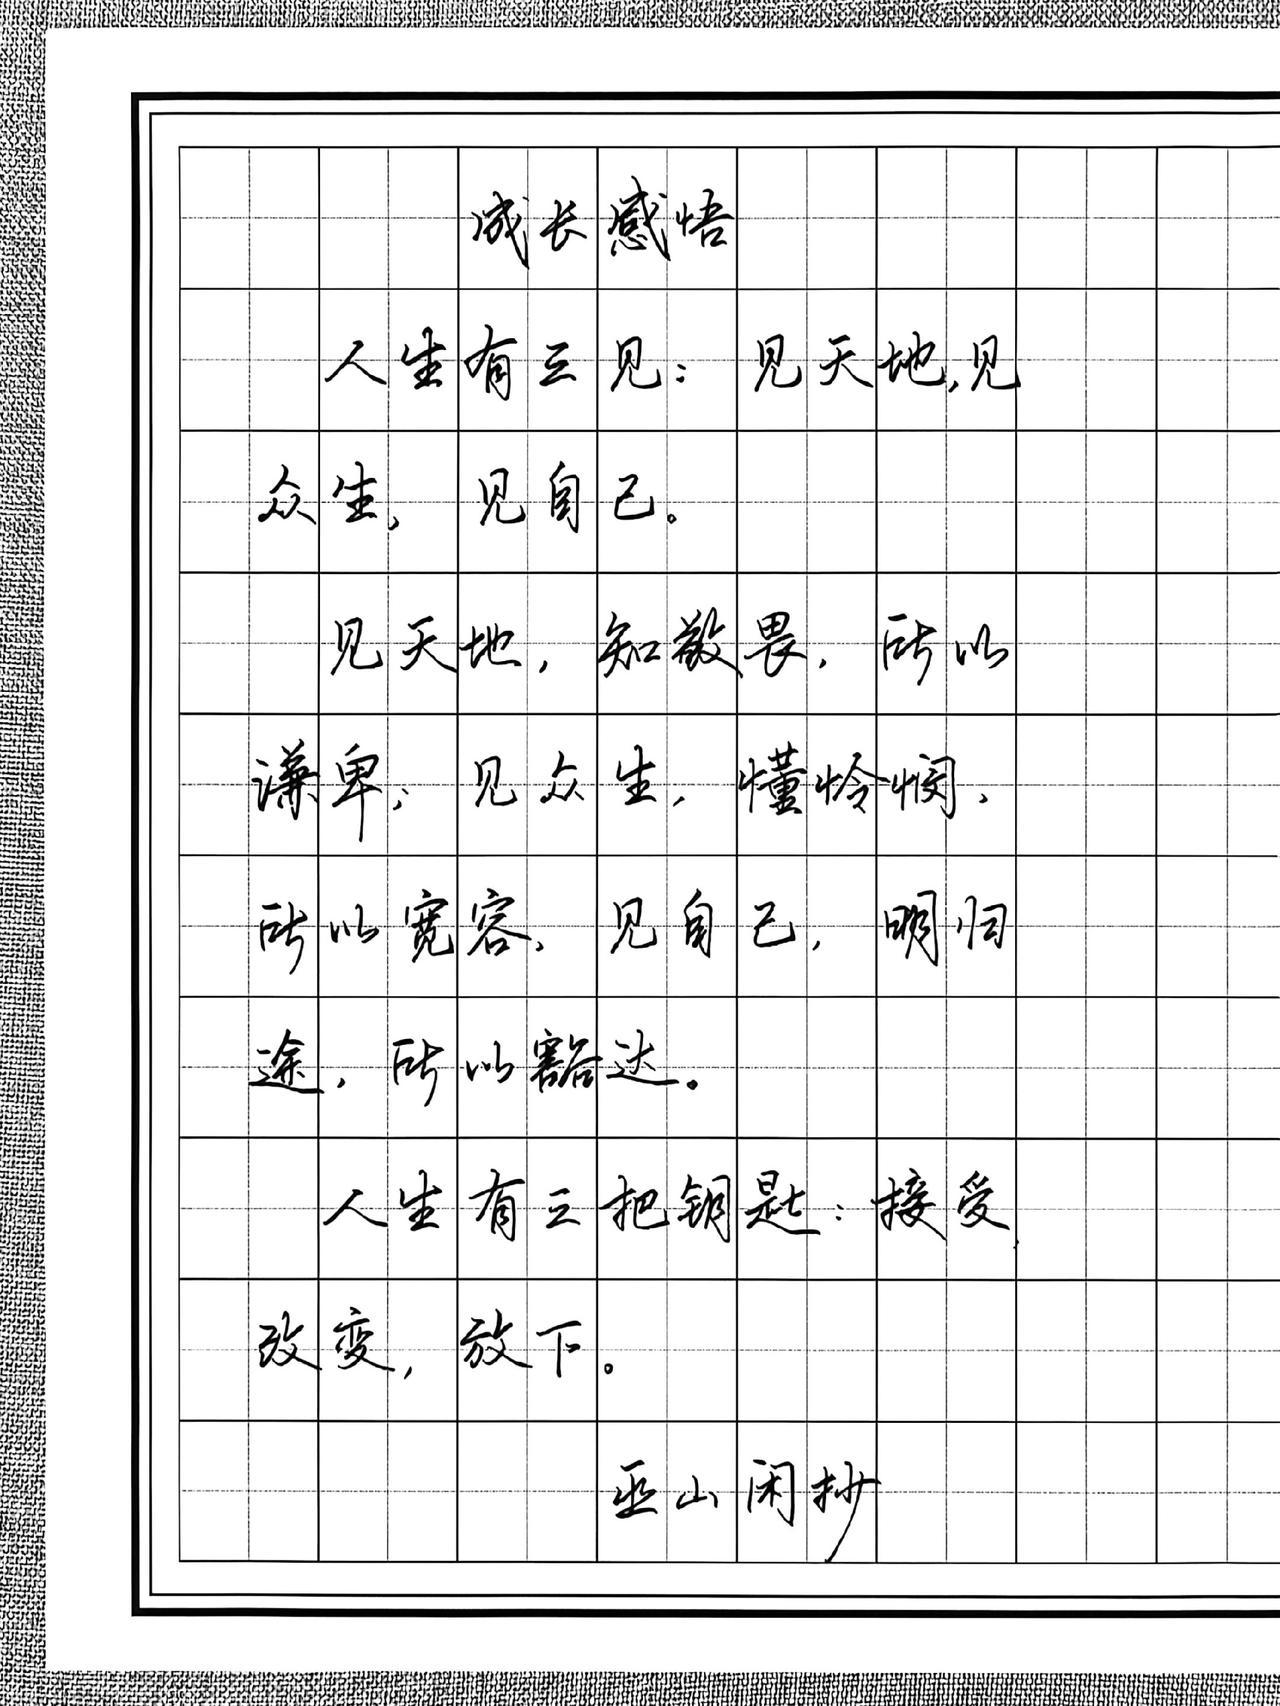 成长感悟
人生有三见：见天地，见
众生，见自己。
见天地，知敬畏，所以
谦卑；见众生，懂怜悯，
所以宽容，见自己，明归
途，所以豁达。
人生有三把钥匙：接受，
改变，放下。
巫山闲抄